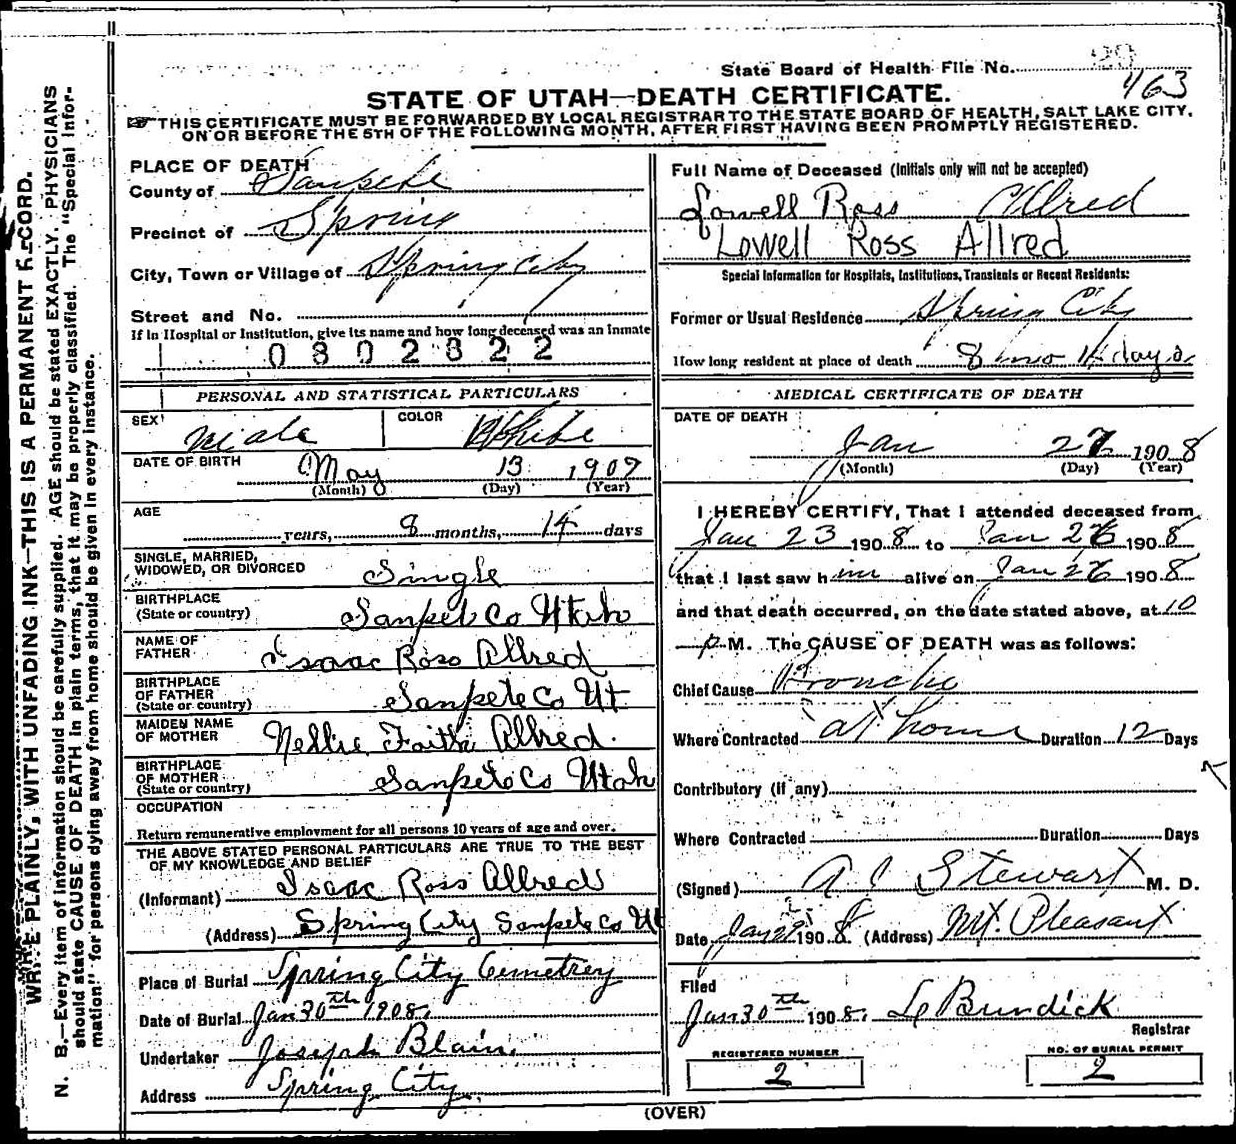 State Board of Health File No.
463
STATE OF UTAH—DEATH CERTIFICATE.
THIS CERTIFICATE MUST BE FORWARDED BY LOCAL REGISTRAR TO THE STATE BOARD OF HEALTH, SALT LAKE CITY,
ON OR BEFORE THE 5TH OF THE FOLLOWING MONTH, AFTER FIRST HAVING BEEN PROMPTLY REGISTERED.
WRITE PLAINLY, WITH UNFADING INK—THIS IS A PERMANENT RECORD.
N. B.—Every item of information should be carefully supplied. AGE should be stated EXACTLY. PHYSICIANS
should state CAUSE OF DEATH in plain terms, that it may be properly classified. The "Special Infor-
mation" for persons dying away from home should be given in every instance.
PLACE OF DEATH
County of Sanpete
Precinct of Spring
City, Town or Village of Spring City
Street and No.
If in Hospital or Institution, give its name and how long deceased was an Inmate
0302822
PERSONAL AND STATISTICAL PARTICULARS
SEX Male COLOR White
DATE OF BIRTH May 13 1907
(Month) (Day) (Year)
AGE
years, 8 months, 14 days
SINGLE, MARRIED,
WIDOWED, OR DIVORCED Single
BIRTHPLACE
(State or country) Sanpete Co Utah
NAME OF
FATHER Isaac Ross Allred
BIRTHPLACE
OF FATHER
(State or country) Sanpete Co Ut
MAIDEN NAME
OF MOTHER Nellie Faith Allred.
BIRTHPLACE
OF MOTHER
(State or country) Sanpete Co Utah
OCCUPATION
Return remunerative employment for all persons 10 years of age and over.
THE ABOVE STATED PERSONAL PARTICULARS ARE TRUE TO THE BEST
OF MY KNOWLEDGE AND BELIEF
(Informant) Isaac Ross Allred
(Address) Spring City Sanpete Co Ut
Place of Burial Spring City Cemetrey
Date of Burial Jan 30th 1908.
Undertaker Joseph Blain.
Address Spring City.
Full Name of Deceased (Initials only will not be accepted)
Lowell Ross Allred
Lowell Ross Allred
Special Information for Hospitals, Institutions, Transients or Recent Residents:
Former or Usual Residence Spring City
How long resident at place of death 8 mo 14 days
MEDICAL CERTIFICATE OF DEATH
DATE OF DEATH
Jan 27 1908
(Month) (Day) (Year)
I HEREBY CERTIFY, That I attended deceased from
Jan 23 1908 to Jan 26 1908
that I last saw him alive on Jan 26 1908
and that death occurred, on the date stated above, at 10
P M. The CAUSE OF DEATH was as follows:
Chief Cause
Where Contracted at home Duration 12 Days
Contributory (if any)
Where Contracted Duration Days
(Signed) A C Stewart M. D.
Date Jan 29 1908. (Address) Mt. Pleasant
Filed
Jan 30th 1908.
Registrar
REGISTERED NUMBER
2
NO. OF BURIAL PERMIT
2
(OVER)